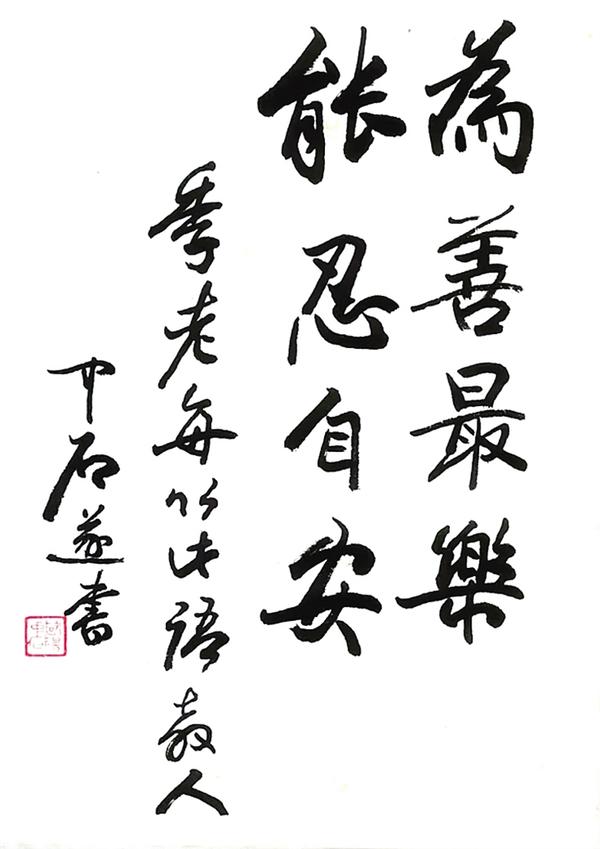 為善最樂
能忍自安
季老每以此語教人
中石遂書